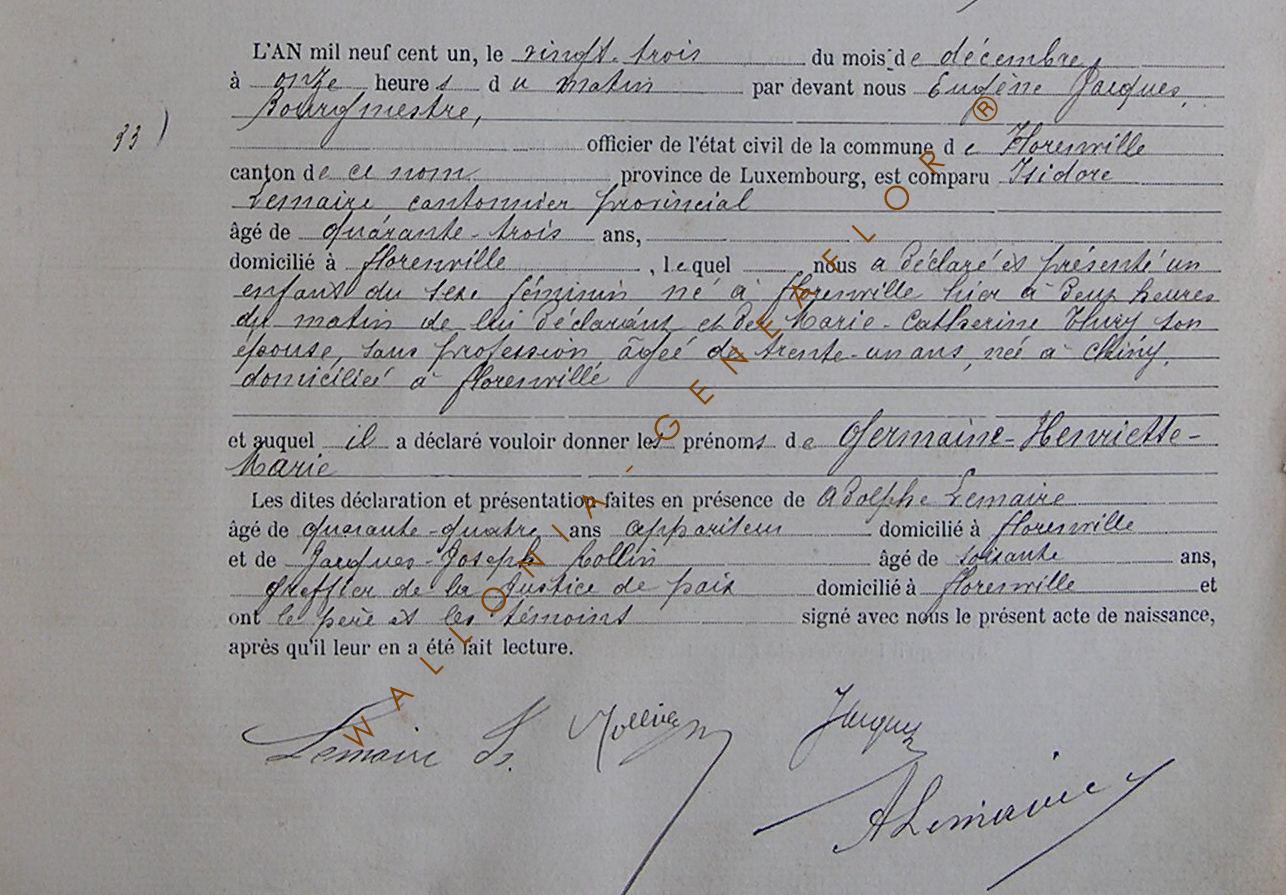 L'AN mil neuf cent un, le vingt-trois du mois de décembre
à onze heures du matin par devant nous Eugène Jacques,
Bourgmestre,
officier de l'état civil de la commune de Florenville
canton de ce nom province de Luxembourg, est comparu Isidore
Lemaire cantonnier provincial
âgé de quarante-trois ans,
domicilié à florenville, lequel nous a déclaré et présenté un
enfant du sexe féminin né à florenville hier à deux heures
du matin de lui déclarant et de Marie-Catherine Thiry son
épouse, sans profession, âgée de trente-un ans, née à Chiny,
domiciliée à florenville
et auquel il a déclaré vouloir donner les prénoms de Germaine-Henriette-
Marie
Les dites déclaration et présentation faites en présence de Adolphe Lemaire
âgé de quarante-quatre ans appariteur domicilié à florenville
et de Jacques-Joseph Rollin âgé de soixante ans,
greffier de la Justice de paix domicilié à florenville et
ont le père et les témoins signé avec nous le présent acte de naissance,
après qu'il leur en a été fait lecture.
Lemaire Is. Rollin Jacques
A Lemaire
WALLONIA-GENEALOR ®